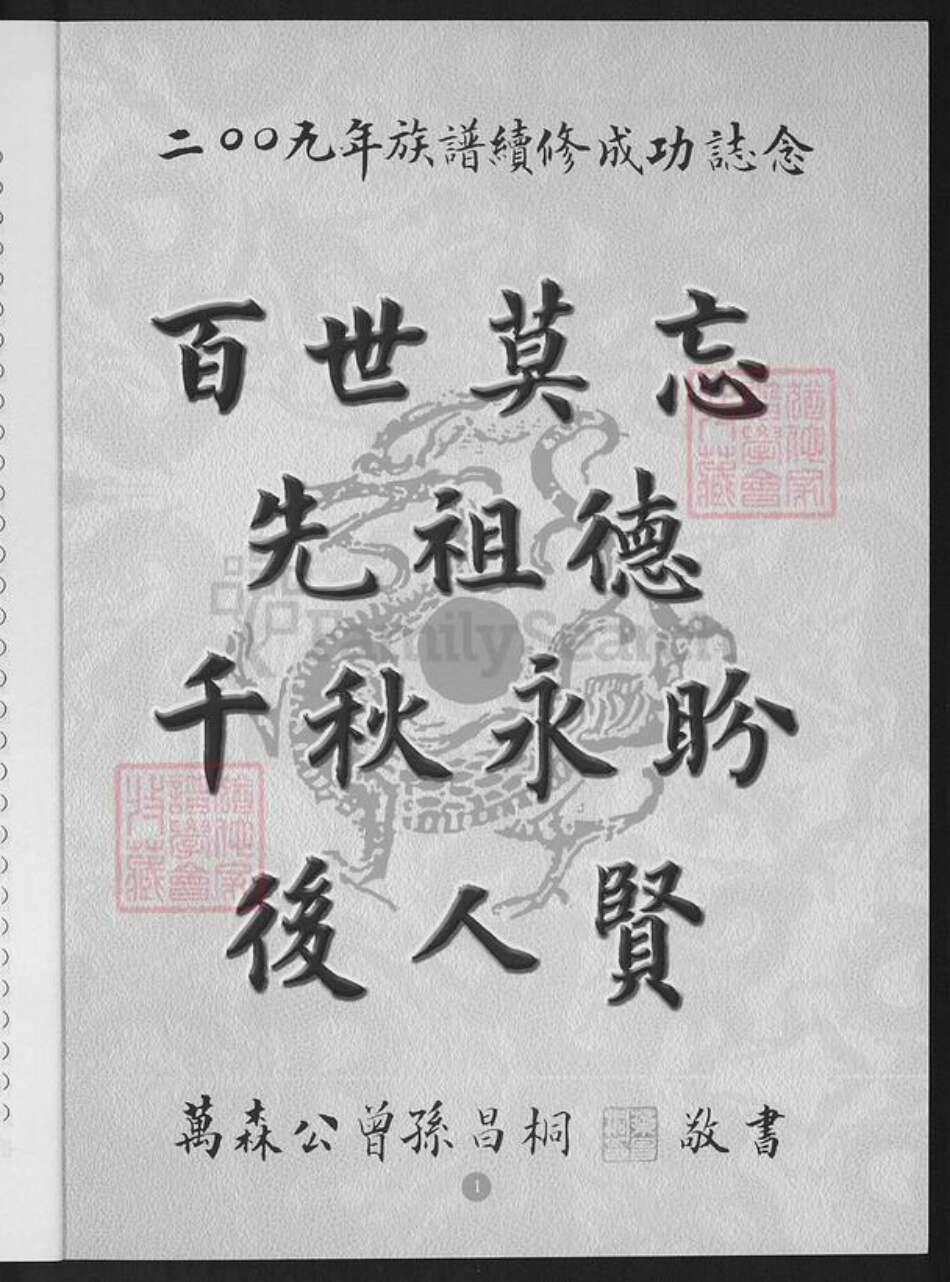 二〇〇九年族譜續修成功誌念
百世莫忘
先祖德
千秋永盼
後人賢
萬森公曾孫昌桐 敬書
1
FamilySearch